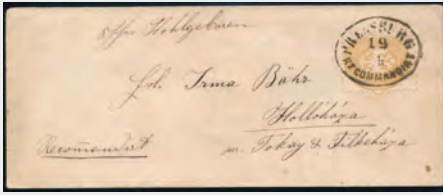 Ihro Wohlgeboren
PRESSBURG
19
4
RECOMMANDIRT
Frl. Irma Bähr
Hollóháza
Recomandirt
pr. Tokay & Filkeháza